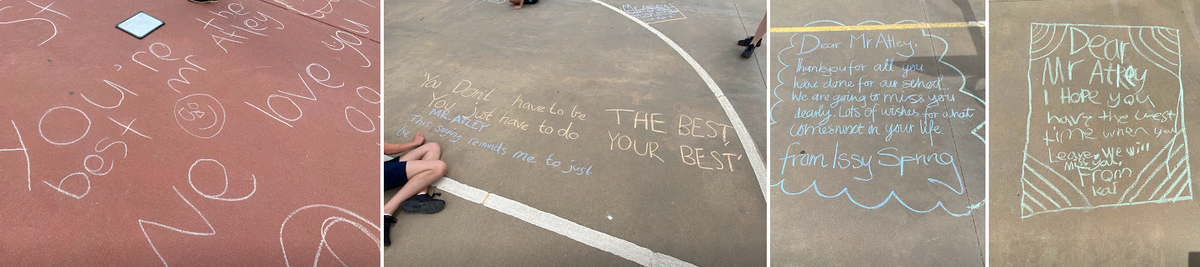 You're
the
best
Mr
Atley
We
love
you
'You Dont have to be THE BEST,
You just have to do YOUR BEST'
MR ATLEY
This saying reminds me to just
be
Dear Mr Atley.
Thankyou for all you
have done for our school.
We are going to miss you
dearly. Lots of wishes for what
comes next in your life
from Issy Spring
Dear
Mr Atley
I Hope you
have the best
time when you
Leave. We will
Miss you.
From
Kai